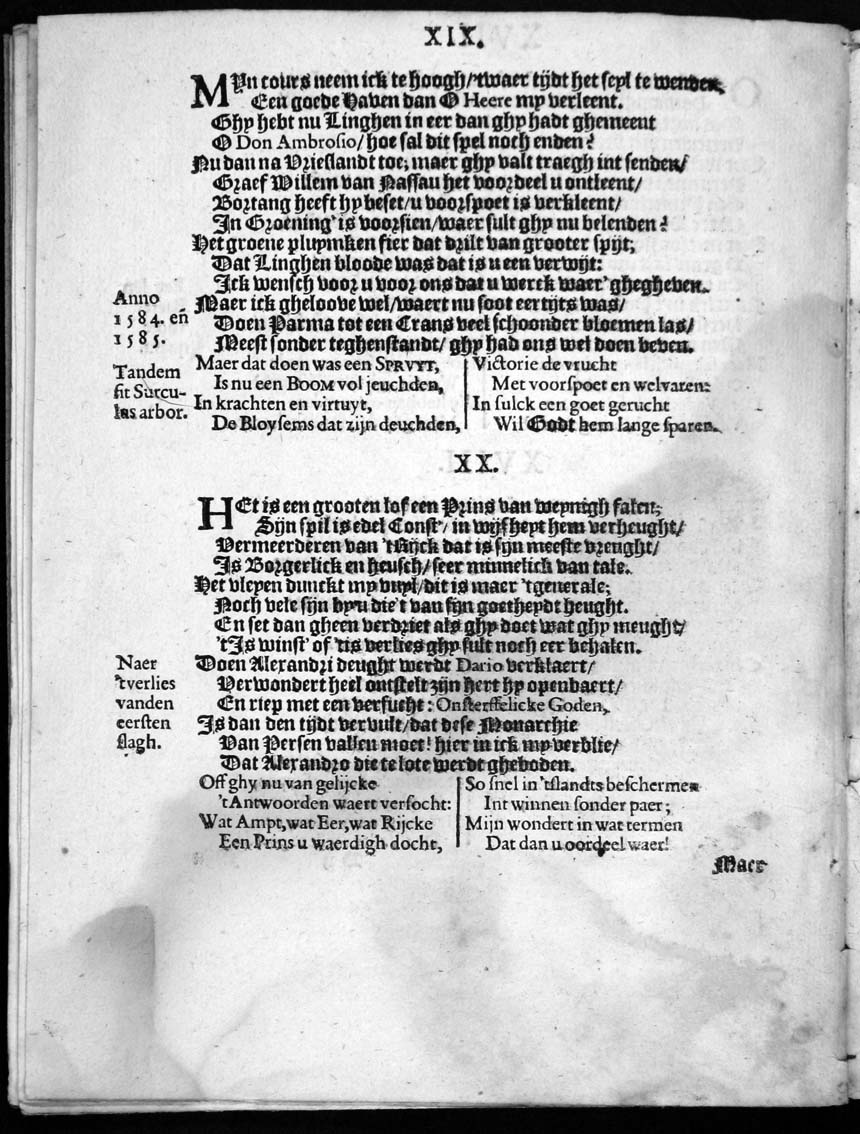 XIX.
MYn cours neem ick te hoogh/'twaer tijdt het seyl te wenden,
Een goede Haven dan O Heere my verleent.
Ghy hebt nu Linghen in eer dan ghy hadt ghemeent
O Don Ambrosio/ hoe sal dit spel noch enden?
Nu dan na Vrieslandt toe; maer ghy valt traegh int senden/
Graef Willem van Nassau het voordeel u ontleent/
Bortang heeft hy beset/u voorspoet is verkleent/
In Groening' is voorsien/waer sult ghy nu belenden?
Het groene pluymken fier dat drilt van grooter spijt;
Dat Linghen bloode was dat is u een verwijt:
Ick wensch voor u voor ons dat u werck waer' ghegheven.
Maer ick gheloove wel/waert nu soot eertijts was/
Doen Parma tot een Crans veel schoonder bloemen las/
Meest sonder teghenstandt/ ghy had ons wel doen beven.
Anno
1584. en
1585.
Tandem
fit Surcu-
lus arbor.
Maer dat doen was een SPRUYT,
Is nu een BOOM vol jeuchden,
In krachten en virtuyt,
De Bloysems dat zijn deuchden,
Victorie de vrucht
Met voorspoet en welvaren:
In sulck een goet gerucht
Wil Godt hem lange sparen.
XX.
HEt is een grooten lof een Prins van weynigh falen;
Sijn spil is edel Const/ in wijsheyt hem verheught/
Vermeerderen van 'tRijck dat is sijn meeste vreught/
Is Borgerlick en heusch/ seer minnelick van tale.
Het vleyen dunckt my vuyl/dit is maer 'tgenerale;
Noch vele sijn by u die't van sijn goetheydt heught.
En set dan gheen verdriet als ghy doet wat ghy meught/
'tIs winst' of 'tis verlies ghy sult noch eer behalen.
Doen Alexandri deught werdt Dario verklaert/
Verwondert heel ontstelt zijn hert hy openbaert/
En riep met een versucht: Onsterffelicke Goden,
Is dan den tijdt vervult/dat dese Monarchie
Van Persen vallen moet! hier in ick my verblie/
Dat Alexandro die te lote werdt gheboden.
Naer
'tverlies
vanden
eersten
slagh.
Off ghy nu van gelijcke
'tAntwoorden waert versocht:
Wat Ampt, wat Eer, wat Rijcke
Een Prins u waerdigh docht,
So snel in 'tslandts beschermen
Int winnen sonder paer;
Mijn wondert in wat termen
Dat dan u oordeel waer!
Maer